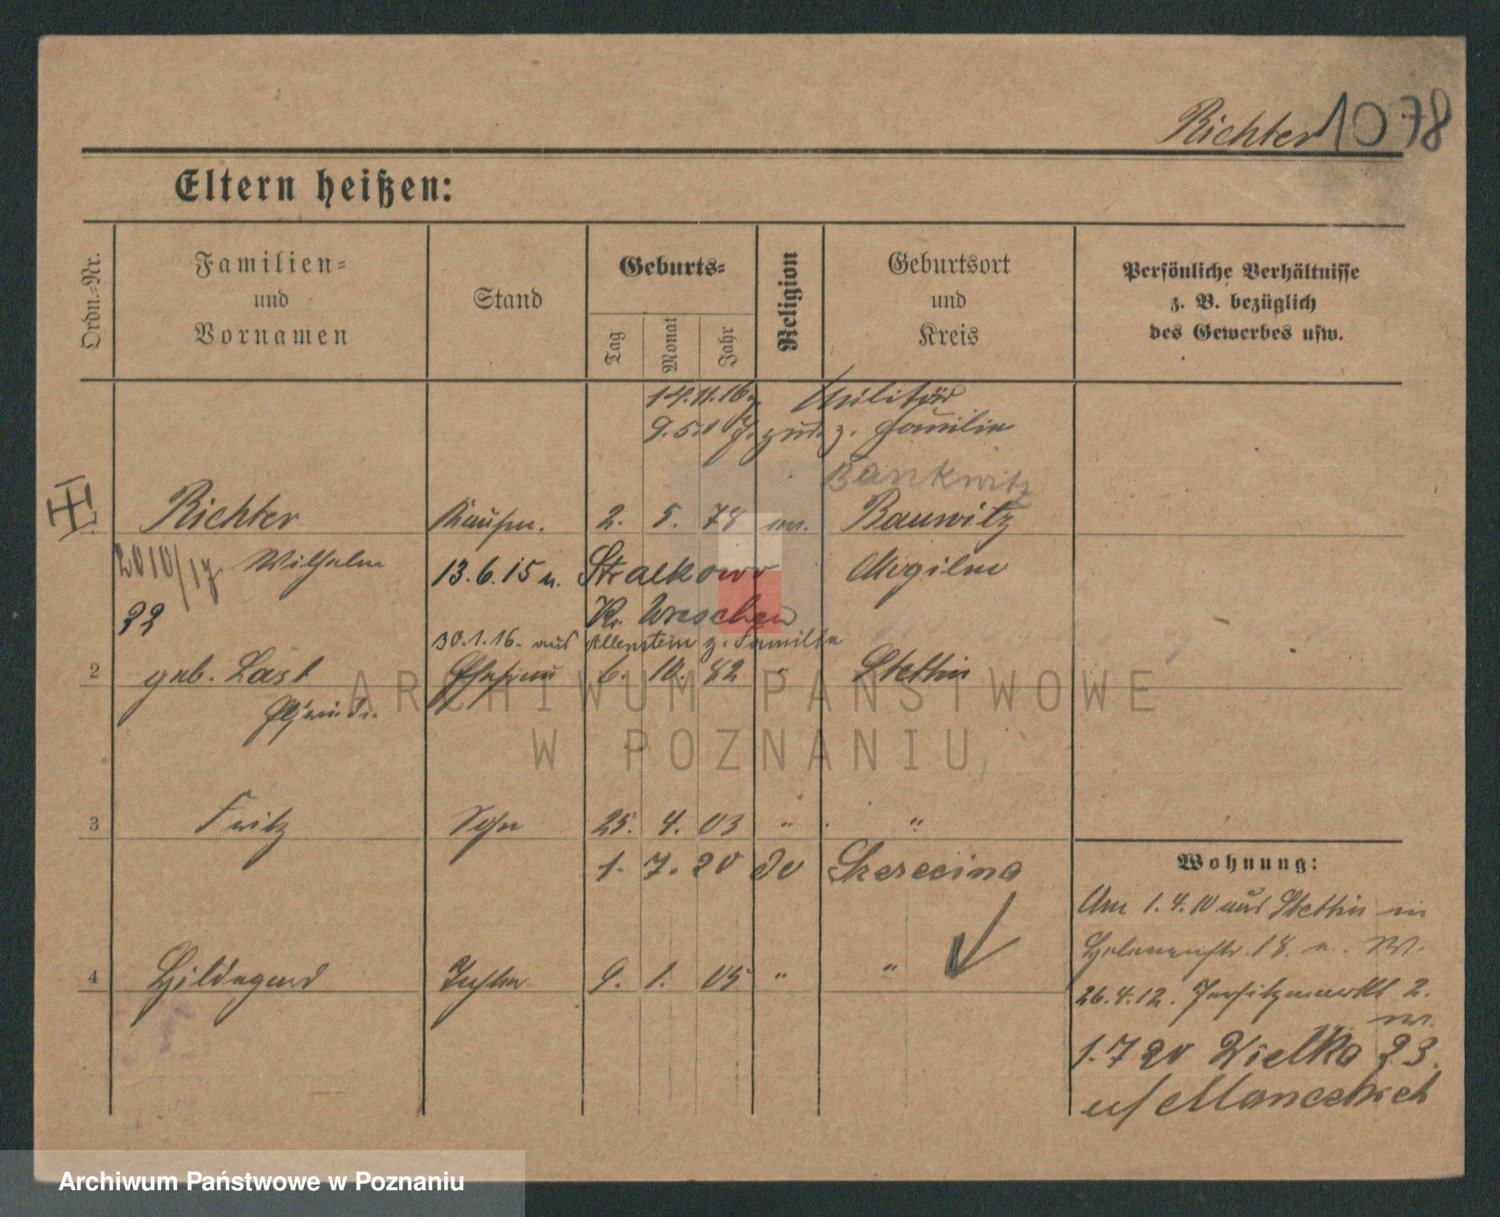 Richter 1078
Eltern heißen:
Ordn.-Nr.
Familien-
und
Vornamen
Stand
Geburts-
Tag
Monat
Jahr
Religion
Geburtsort
und
Kreis
Persönliche Verhältnisse
z. B. bezüglich
des Gewerbes usw.
14.11.16 Militär
9.5.1 z. Familie
Bankwitz
Richter Kaufm. 2. 5. 78 Bauwitz
2010/17 Wilhelm 13.6.15 n. Stralkowo Mogilno
22 Kr. Wreschen
30.1.16. aus Allenstein z. Familie
2 geb. Last Ehefrau 6. 10. 82 " Stettin
ARCHIWUM PAŃSTWOWE
W POZNANIU
3 Fritz Sohn 25. 4. 03 " "
1. 7. 20 do
Wohnung:
Am 1.4.10 aus Stettin in
Helenenstr. 18
4 Hildegard Tochter 9. 1. 05 " "
26.4.12. Jersitzmarkt 2.
1.7 20 Wielka 23.
u/
Archiwum Państwowe w Poznaniu